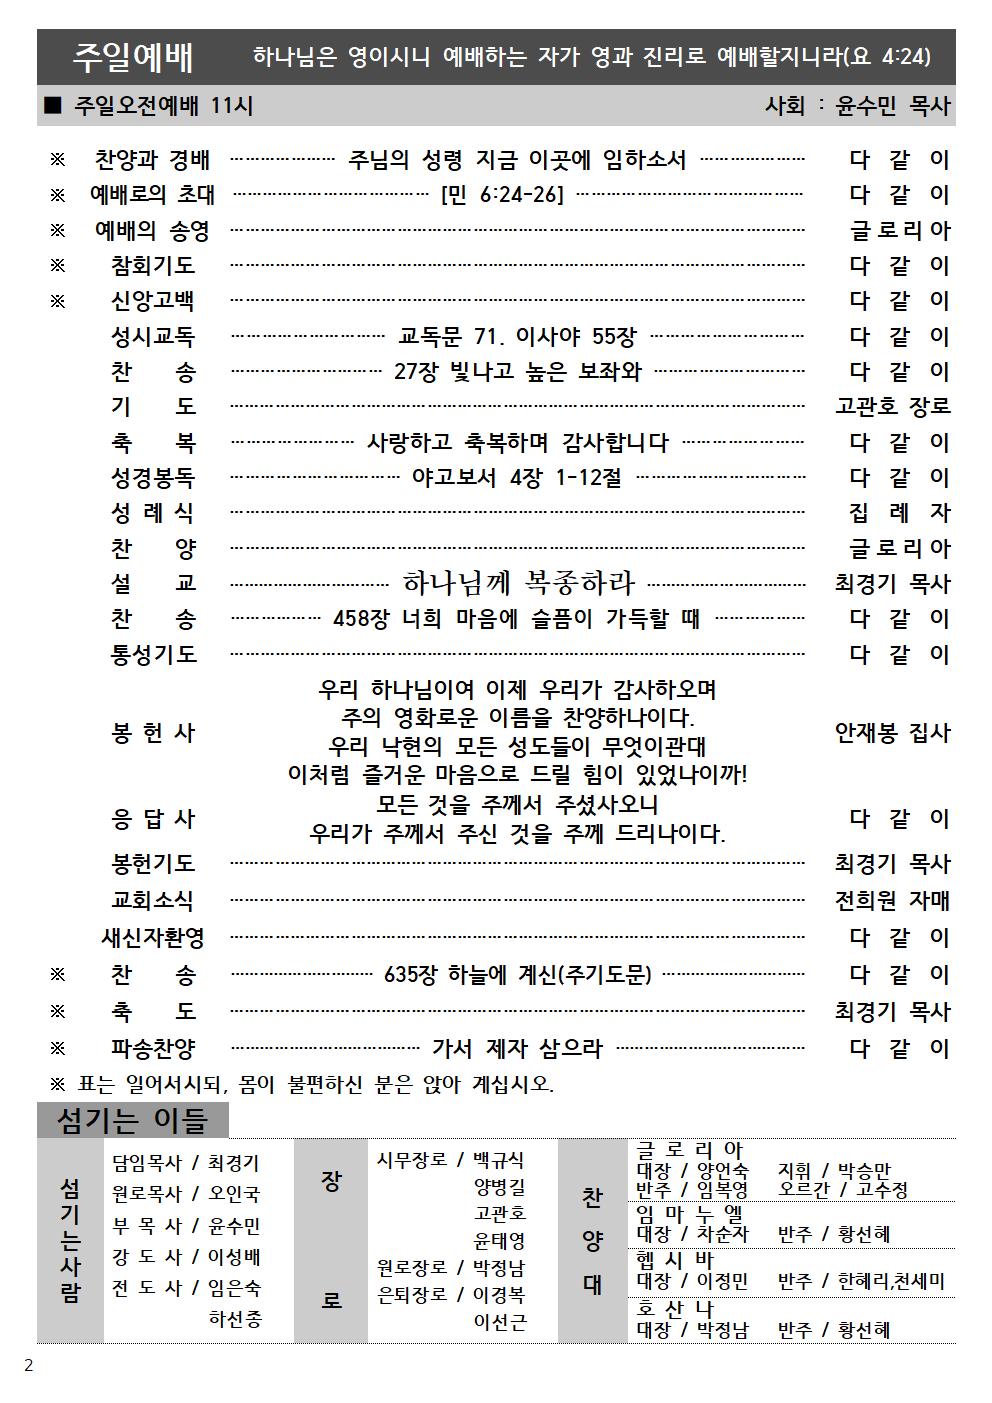 주일예배 하나님은 영이시니 예배하는 자가 영과 진리로 예배할지니라(요 4:24)
■ 주일오전예배 11시 사회 : 윤수민 목사
※ 찬양과 경배 ………………… 주님의 성령 지금 이곳에 임하소서 ………………… 다 같 이
※ 예배로의 초대 ………………………………… [민 6:24-26] ……………………………………… 다 같 이
※ 예배의 송영 …………………………………………………………………………………………………… 글로리아
※ 참회기도 …………………………………………………………………………………………………… 다 같 이
※ 신앙고백 …………………………………………………………………………………………………… 다 같 이
성시교독 ………………………… 교독문 71. 이사야 55장 ………………………… 다 같 이
찬 송 ………………………… 27장 빛나고 높은 보좌와 ………………………… 다 같 이
기 도 …………………………………………………………………………………………………… 고관호 장로
축 복 …………………… 사랑하고 축복하며 감사합니다 …………………… 다 같 이
성경봉독 …………………………… 야고보서 4장 1-12절 …………………………… 다 같 이
성 례 식 …………………………………………………………………………………………………… 집 례 자
찬 양 …………………………………………………………………………………………………… 글로리아
설 교 ………………………… 하나님께 복종하라 ………………………… 최경기 목사
찬 송 ……………… 458장 너희 마음에 슬픔이 가득할 때 ……………… 다 같 이
통성기도 …………………………………………………………………………………………………… 다 같 이
우리 하나님이여 이제 우리가 감사하오며
주의 영화로운 이름을 찬양하나이다.
봉 헌 사 안재봉 집사
우리 낙현의 모든 성도들이 무엇이관대
이처럼 즐거운 마음으로 드릴 힘이 있었나이까!
모든 것을 주께서 주셨사오니
응 답 사 다 같 이
우리가 주께서 주신 것을 주께 드리나이다.
봉헌기도 …………………………………………………………………………………………………… 최경기 목사
교회소식 …………………………………………………………………………………………………… 전희원 자매
새신자환영 …………………………………………………………………………………………………… 다 같 이
※ 찬 송 ………………………… 635장 하늘에 계신(주기도문) ………………………… 다 같 이
※ 축 도 …………………………………………………………………………………………………… 최경기 목사
※ 파송찬양 ………………………………… 가서 제자 삼으라 ………………………………… 다 같 이
※ 표는 일어서시되, 몸이 불편하신 분은 앉아 계십시오.
섬기는 이들
섬기는사람
담임목사 / 최경기
원로목사 / 오인국
부 목 사 / 윤수민
강 도 사 / 이성배
전 도 사 / 임은숙
하선종
장로
시무장로 / 백규식
양병길
고관호
윤태영
원로장로 / 박정남
은퇴장로 / 이경복
이선근
찬양대
글 로 리 아
대장 / 양언숙 지휘 / 박승만
반주 / 임복영 오르간 / 고수정
임 마 누 엘
대장 / 차순자 반주 / 황선혜
헵 시 바
대장 / 이정민 반주 / 한혜리,천세미
호 산 나
대장 / 박정남 반주 / 황선혜
2